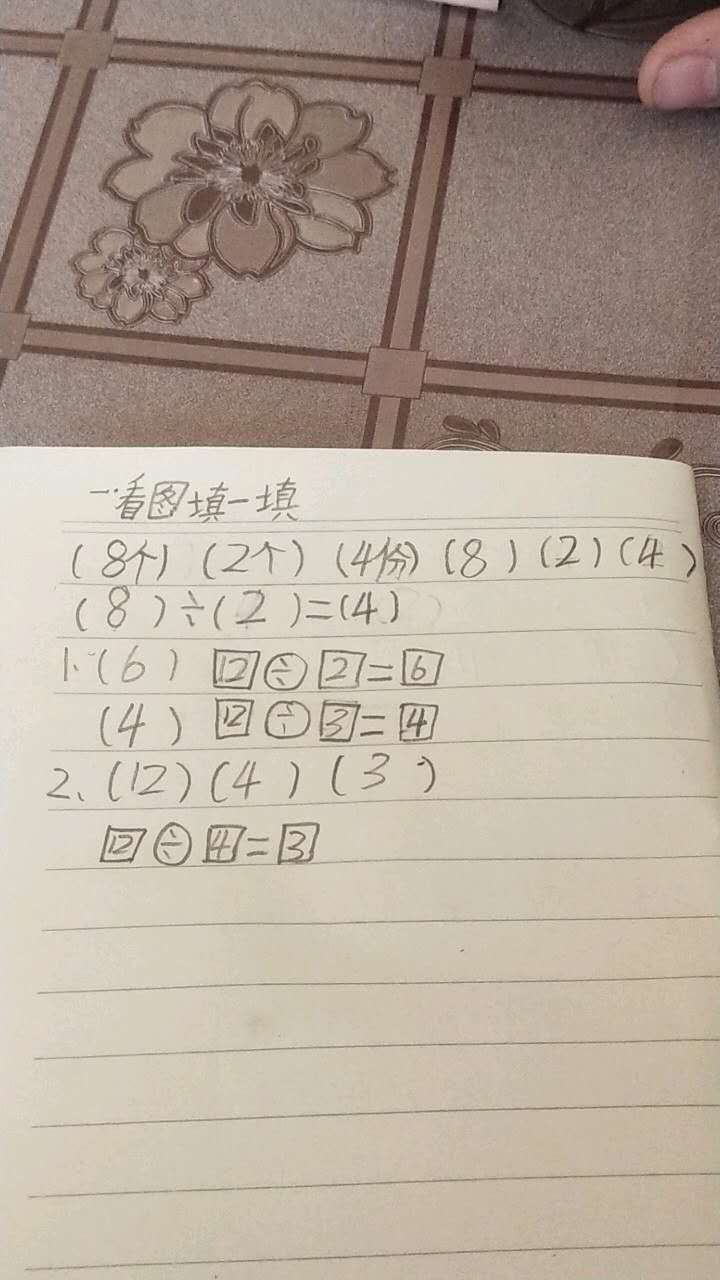 一.看图填一填
(8个) (2个) (4份) (8) (2) (4)
(8)÷(2)=(4)
1.(6) 12÷2=6
(4) 12÷3=4
2、(12)(4)(3)
12÷4=3